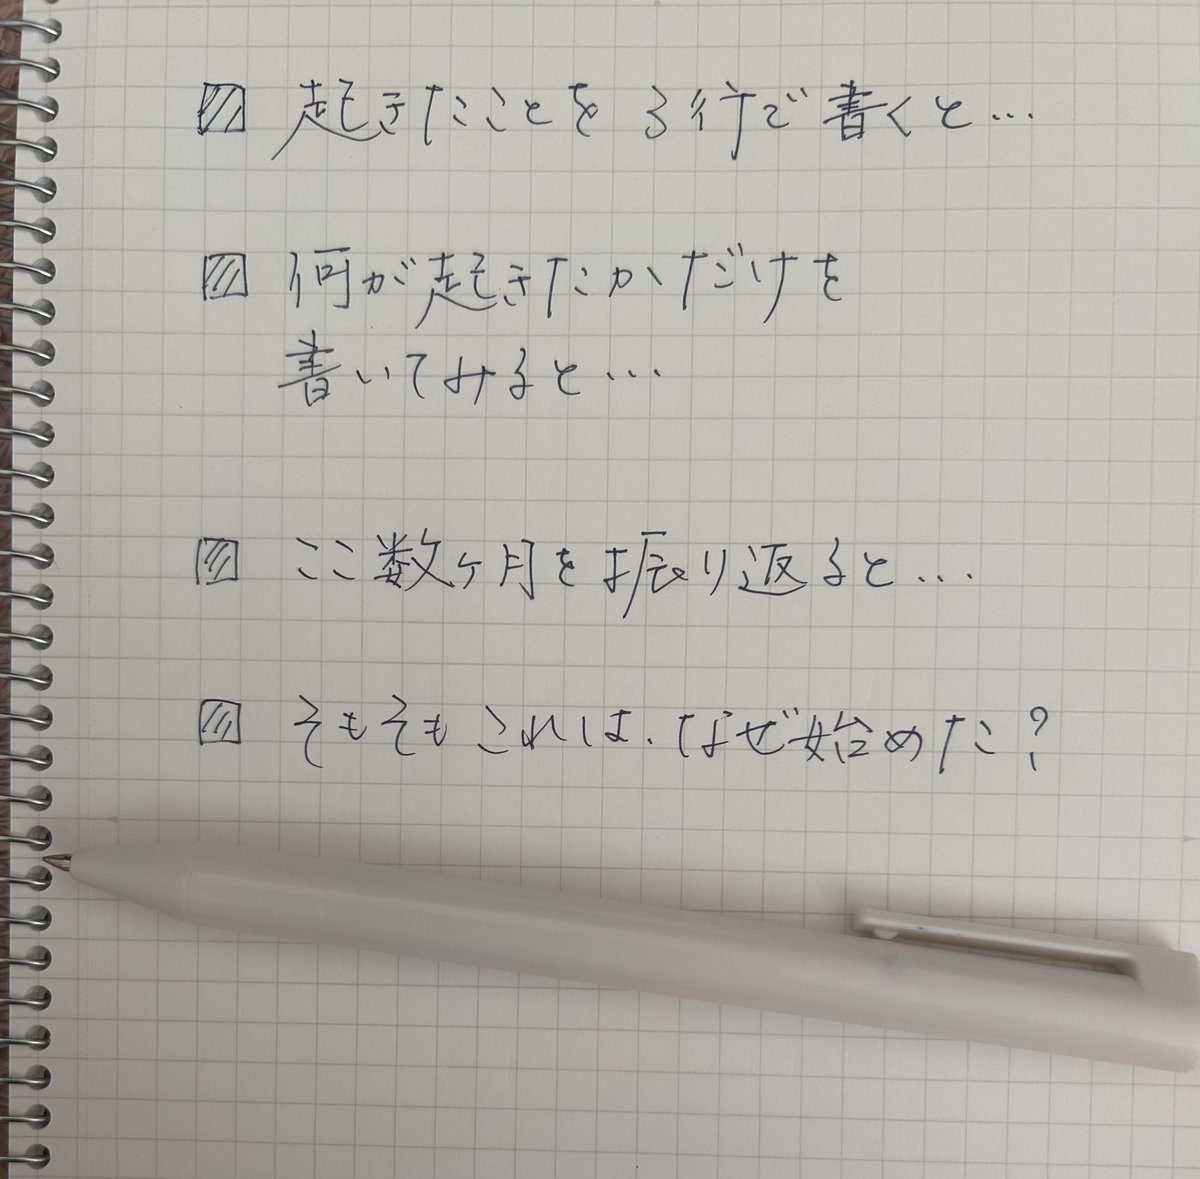 起きたことを3行で書くと...
何が起きたかだけを
書いてみると...
ここ数ヶ月を振り返ると...
そもそもこれは、なぜ始めた?